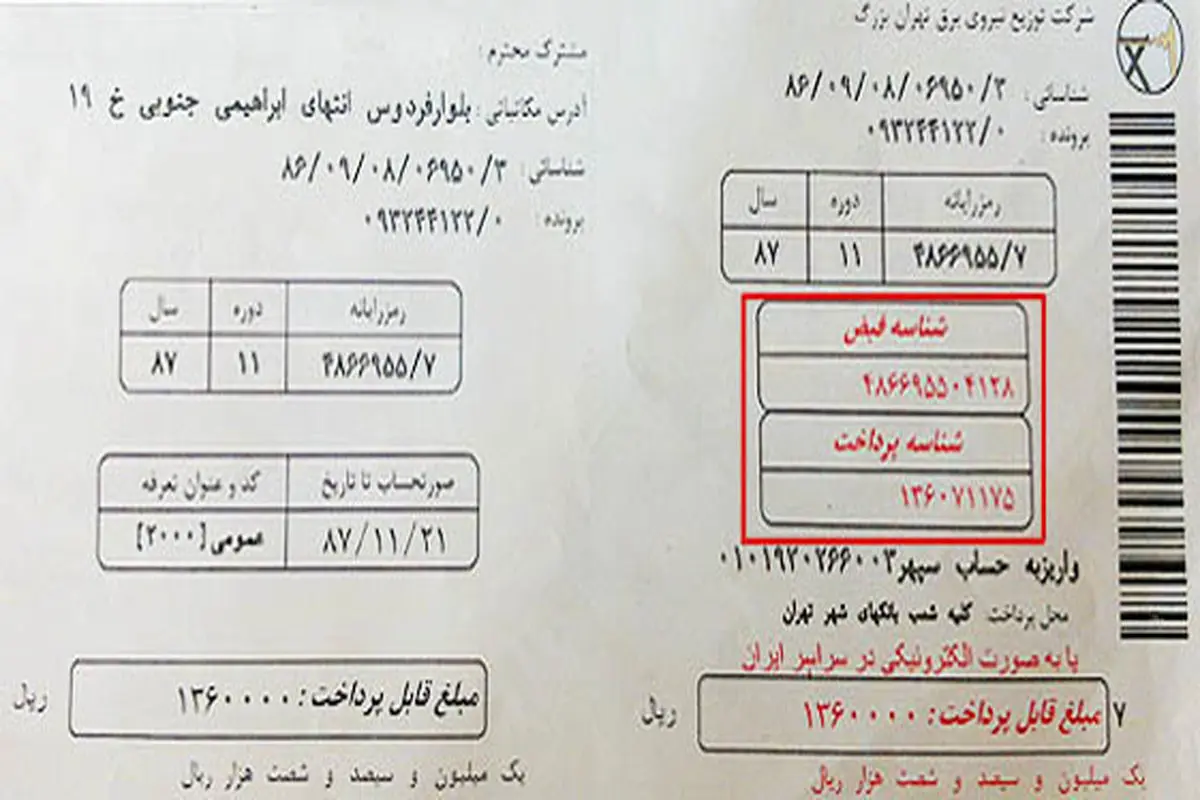 شرکت توزیع نیروی برق تهران بزرگ
شناسائی: ۸۶/۰۹/۰۸/۰۶۹۵۰/۳
پرونده: ۰۹۳۲۴۴۱۲۲/۰
رمزرایانه دوره سال
۴۸۶۶۹۵۵/۷ ۱۱ ۸۷
شناسه قبض
۴۸۶۶۹۵۵۰۴۱۲۸
شناسه پرداخت
۱۳۶۰۷۱۱۷۵
واریزبه حساب سپهر۰۱۰۱۹۲۰۲۶۶۰۰۳
محل پرداخت: کلیه شعب بانکهای شهر تهران
یا به صورت الکترونیکی در سراسر ایران
۷ مبلغ قابل پرداخت: ۱۳۶۰۰۰۰ ریال
یک میلیون و سیصد و شصت هزار ریال
مشترک محترم:
آدرس مکاتباتی: بلوارفردوس انتهای ابراهیمی جنوبی خ ۱۹
شناسائی: ۸۶/۰۹/۰۸/۰۶۹۵۰/۳
پرونده: ۰۹۳۲۴۴۱۲۲/۰
رمزرایانه دوره سال
۴۸۶۶۹۵۵/۷ ۱۱ ۸۷
صورتحساب تا تاریخ کد و عنوان تعرفه
۸۷/۱۱/۲۱ عمومی [۲۰۰۰]
مبلغ قابل پرداخت: ۱۳۶۰۰۰۰ ریال
یک میلیون و سیصد و شصت هزار ریال